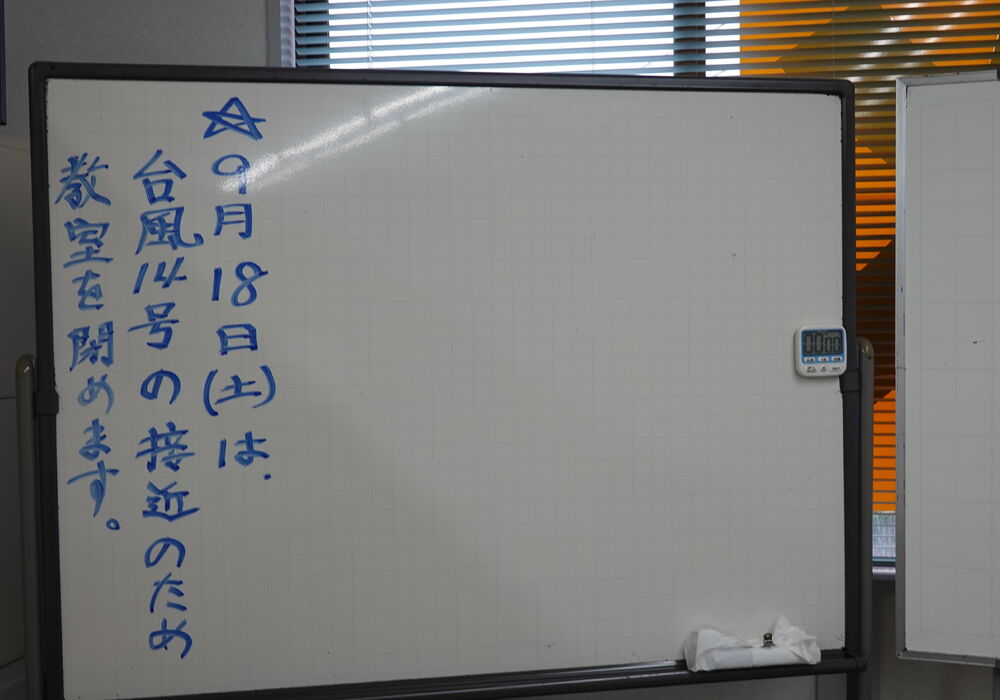 ☆9月18日(土)は、
台風14号の接近のため
教室を閉めます。
00 00